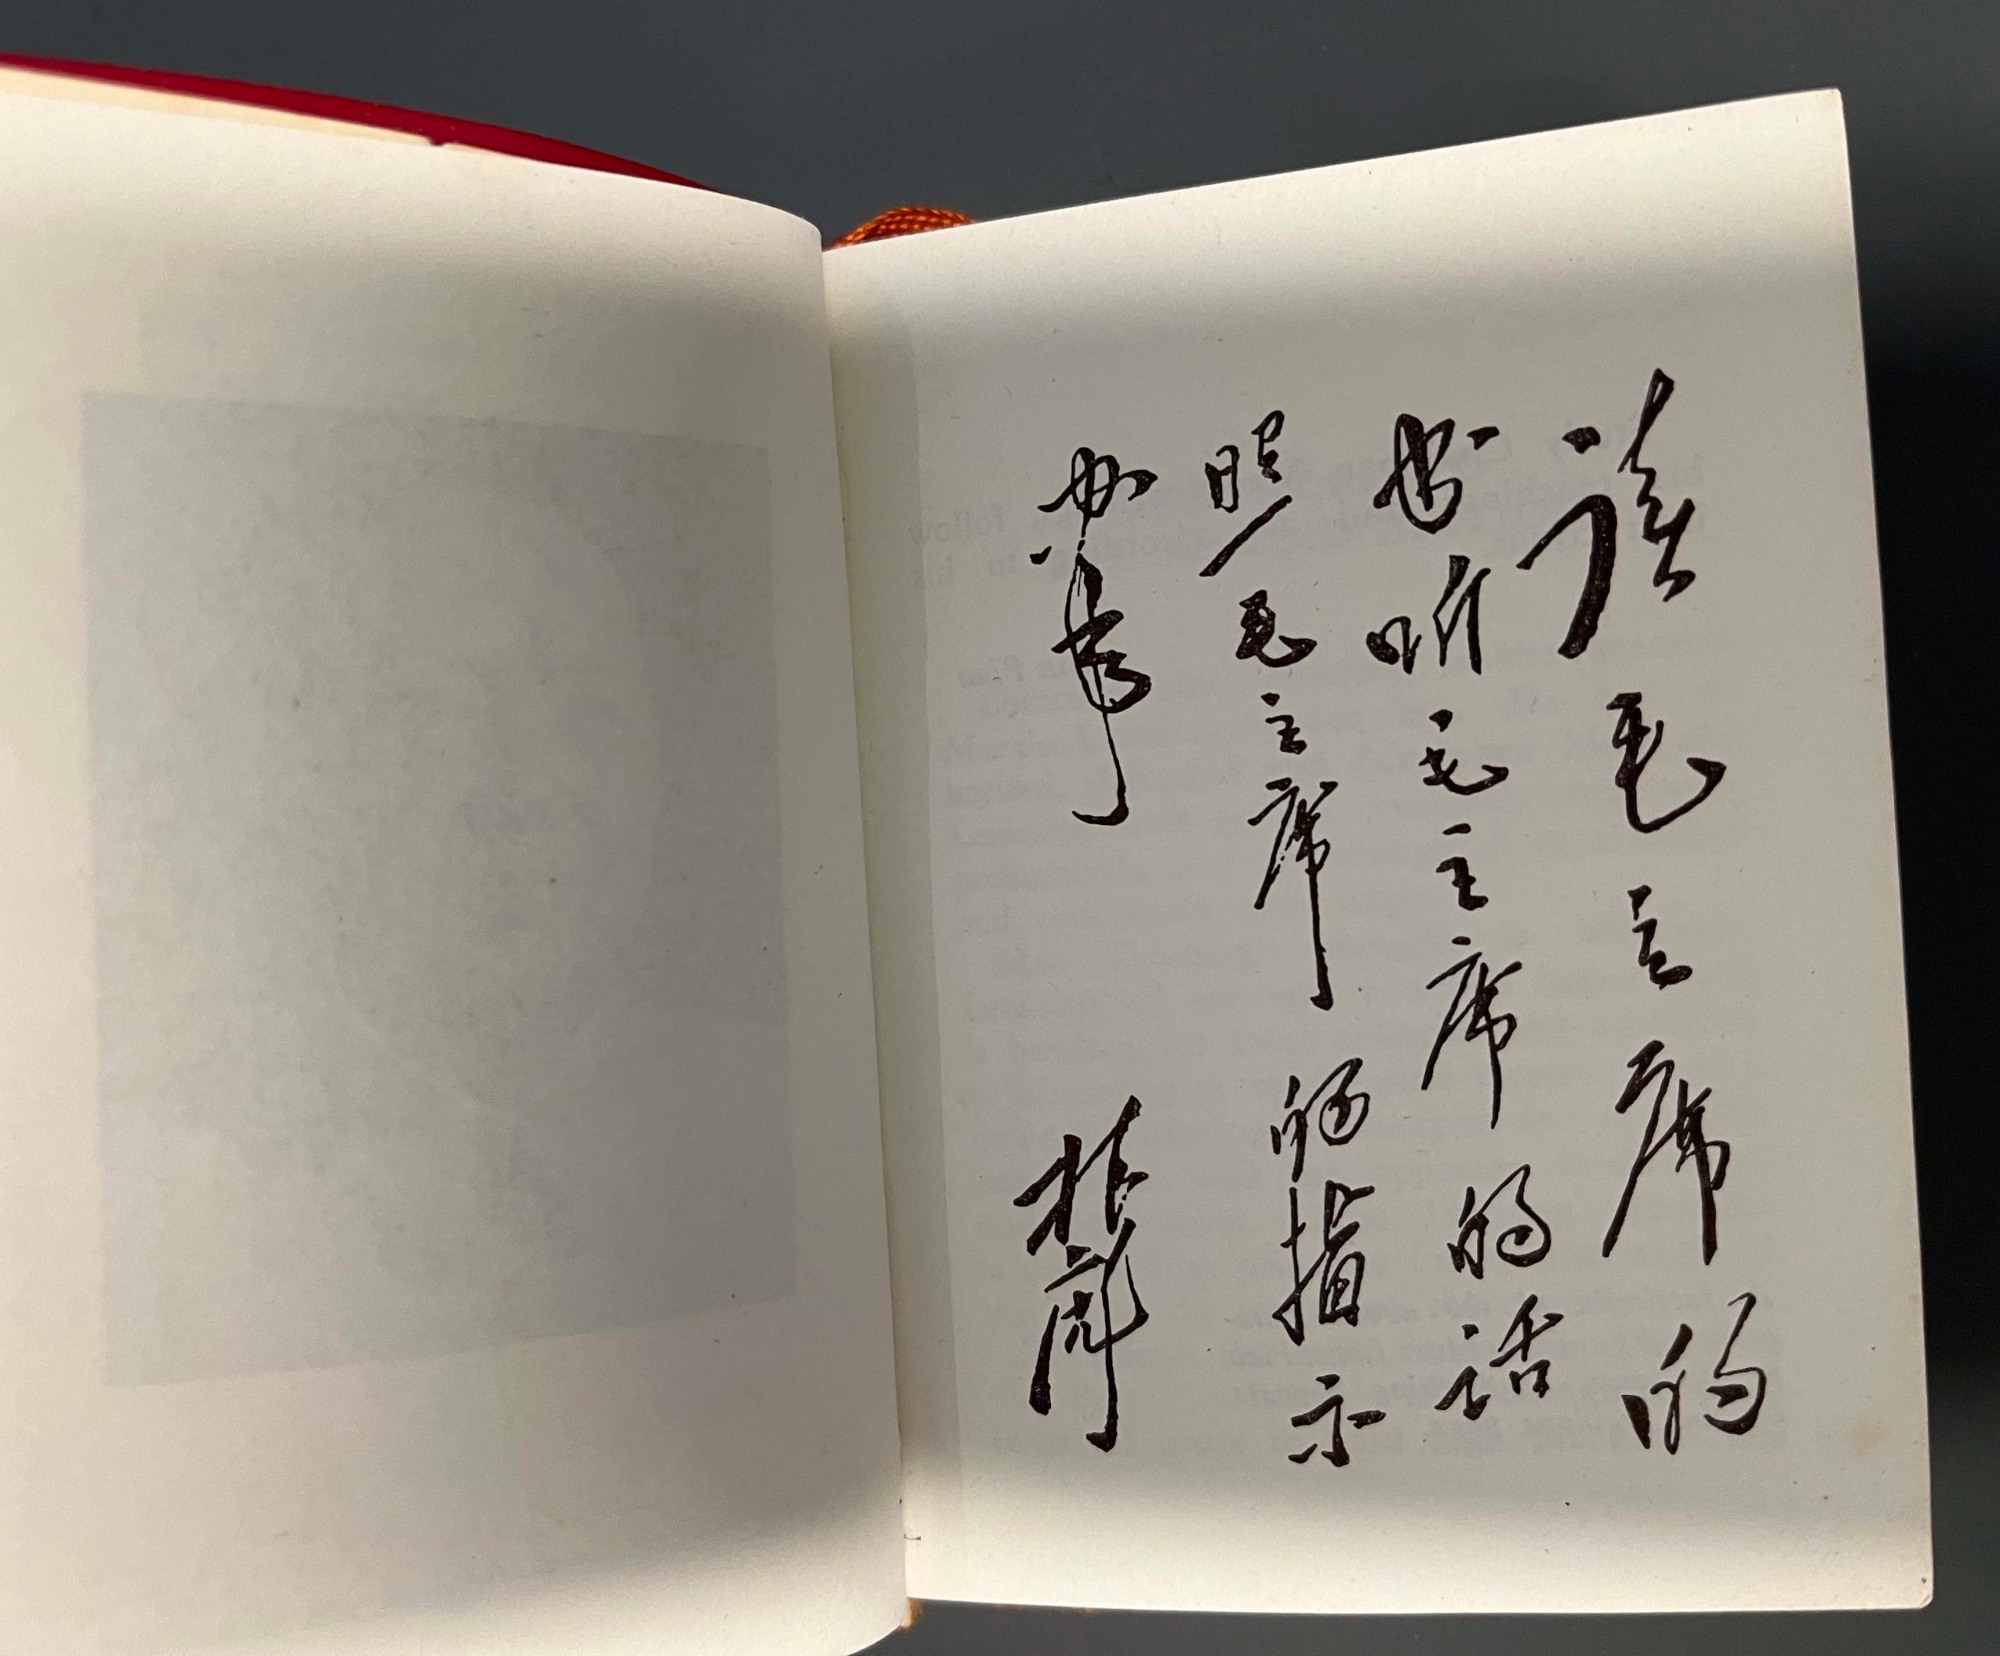 读毛主席的
书听毛主席的话
照毛主席的指示
办事 林彪